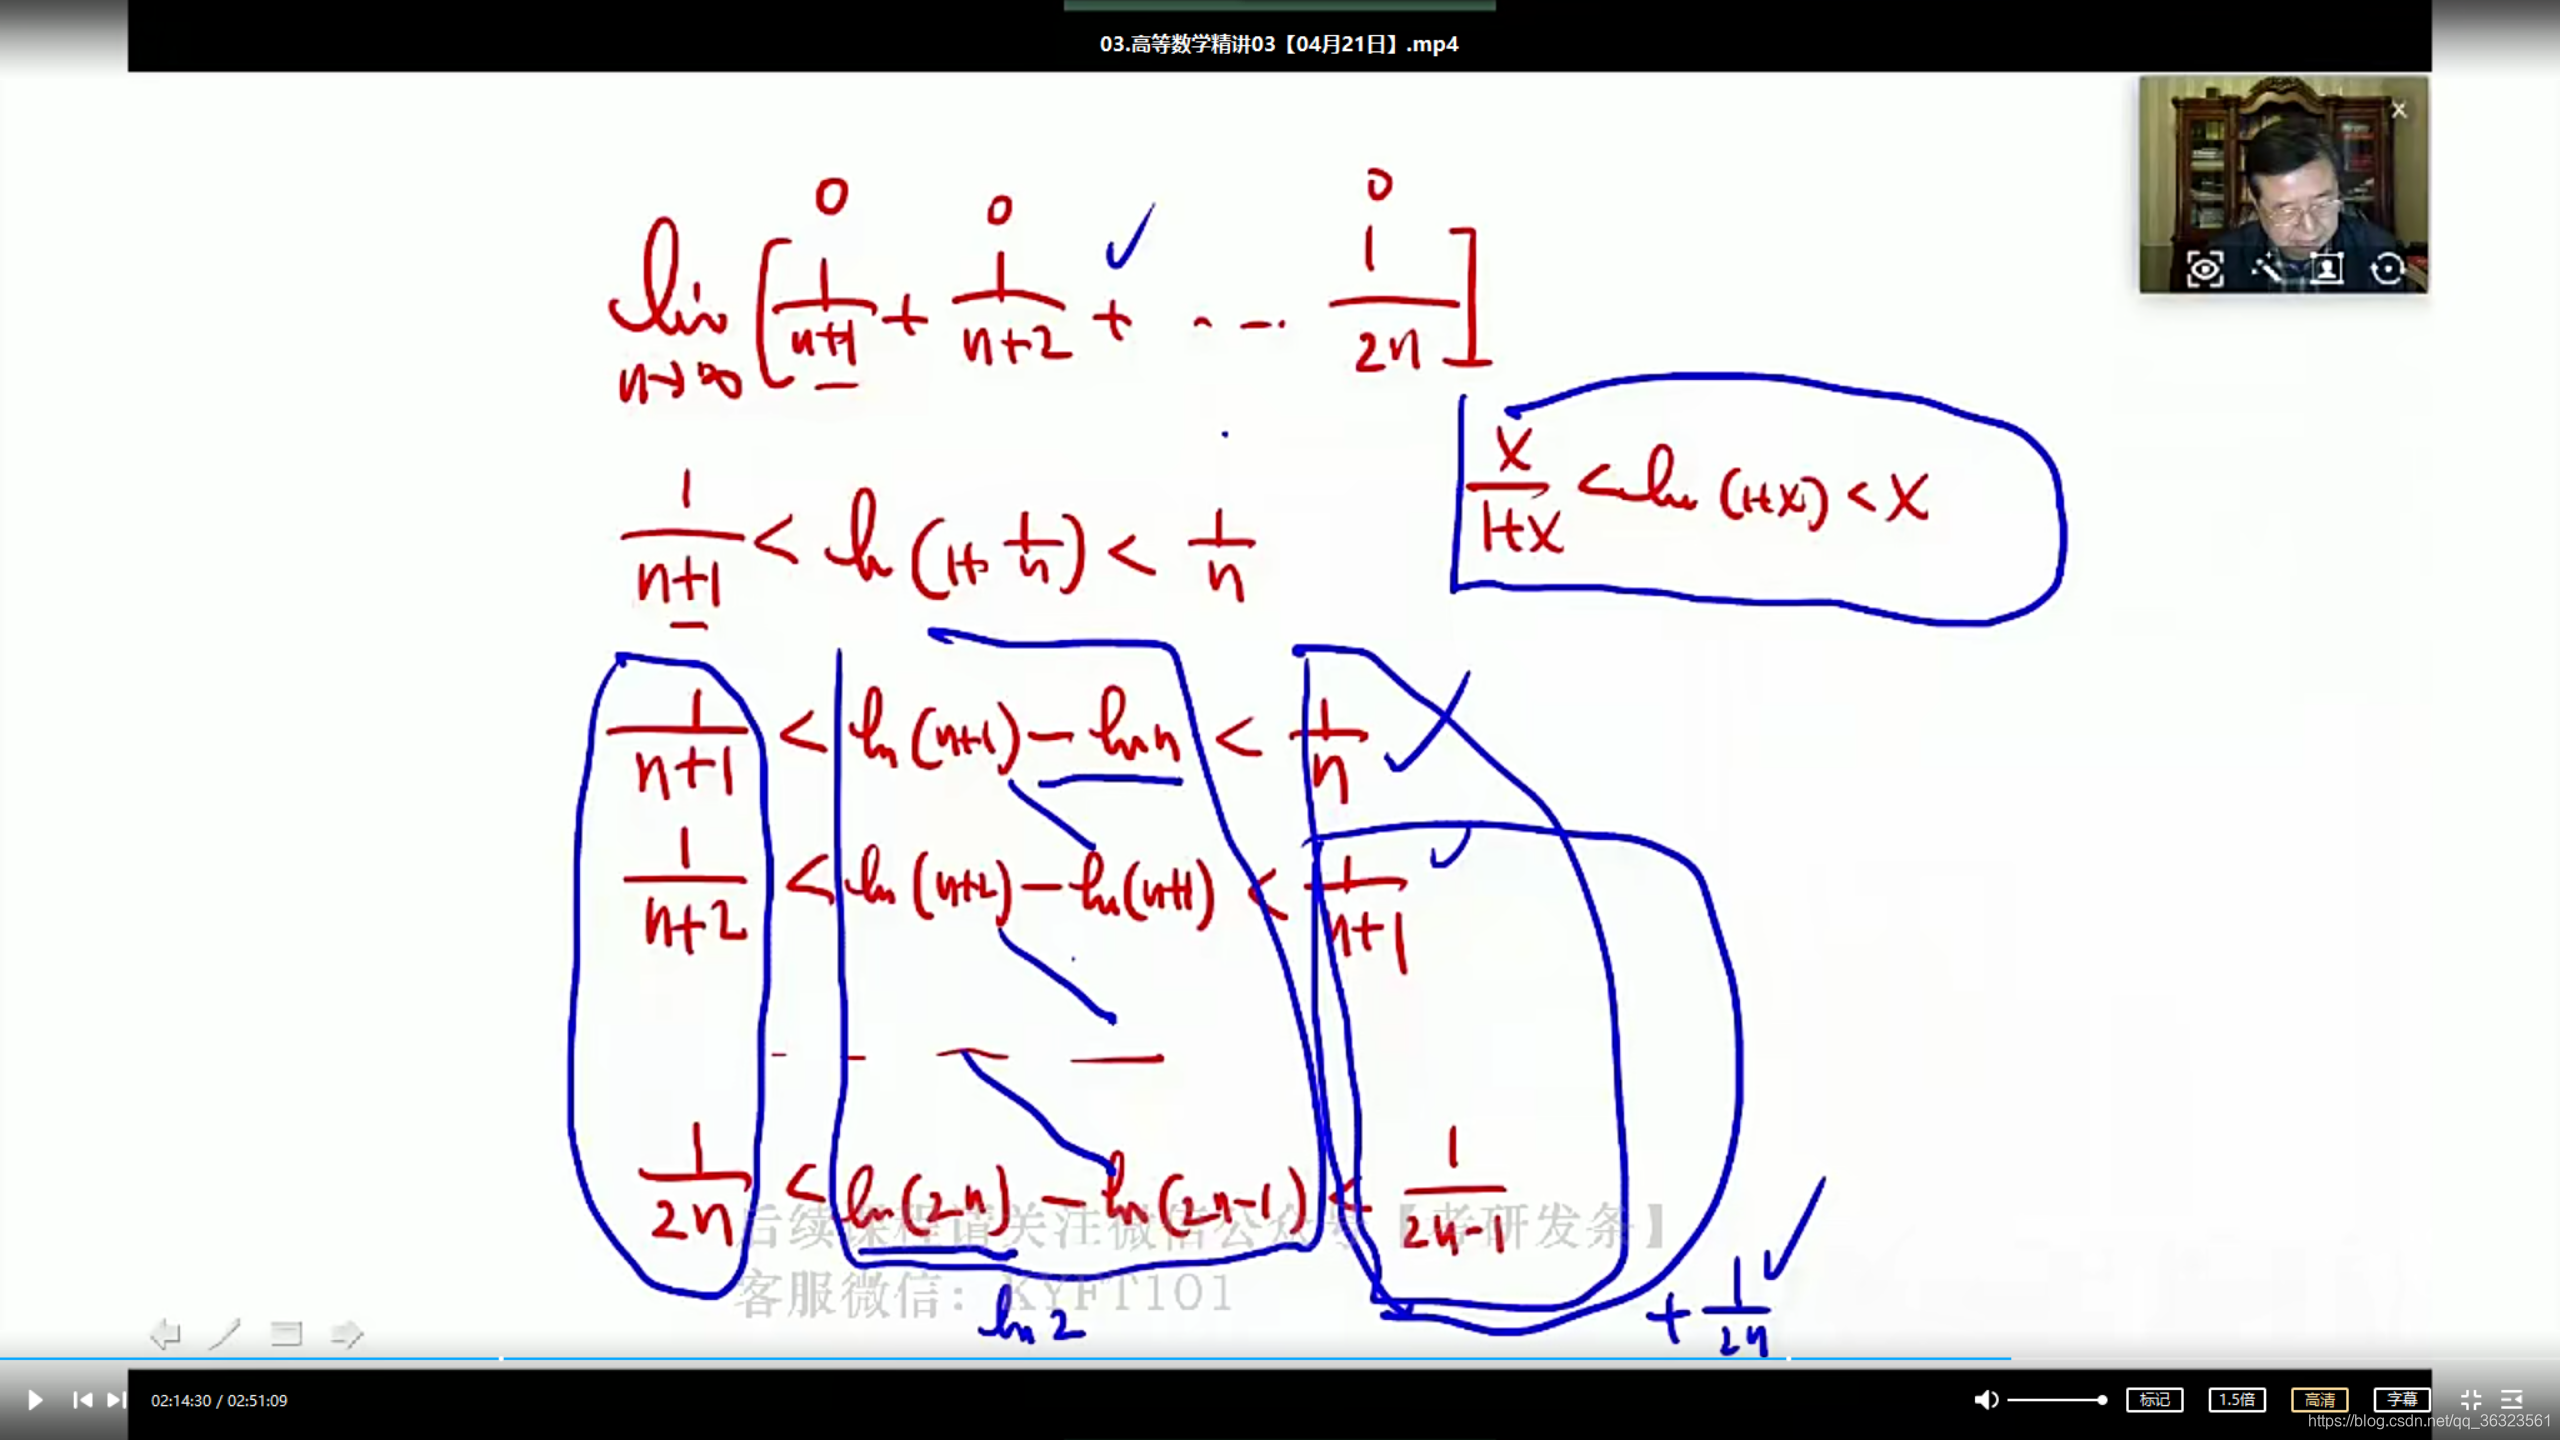 03.高等数学精讲03【04月21日】.mp4
0 0 0
lim n→∞ [ 1/(n+1) + 1/(n+2) + ... 1/2n ]
x/(1+x) < ln(1+x) < x
1/(n+1) < ln(1+1/n) < 1/n
1/(n+1) < ln(n+1) - ln n < 1/n
1/(n+2) < ln(n+2) - ln(n+1) < 1/(n+1)
1/2n < ln(2n) - ln(2n-1) < 1/(2n-1)
后续课程请关注微信公众号【考研发条】
客服微信：KYFT101
ln 2
+ 1/2n
02:14:30 / 02:51:09
标记 1.5倍 高清 字幕
https://blog.csdn.net/qq_36323561